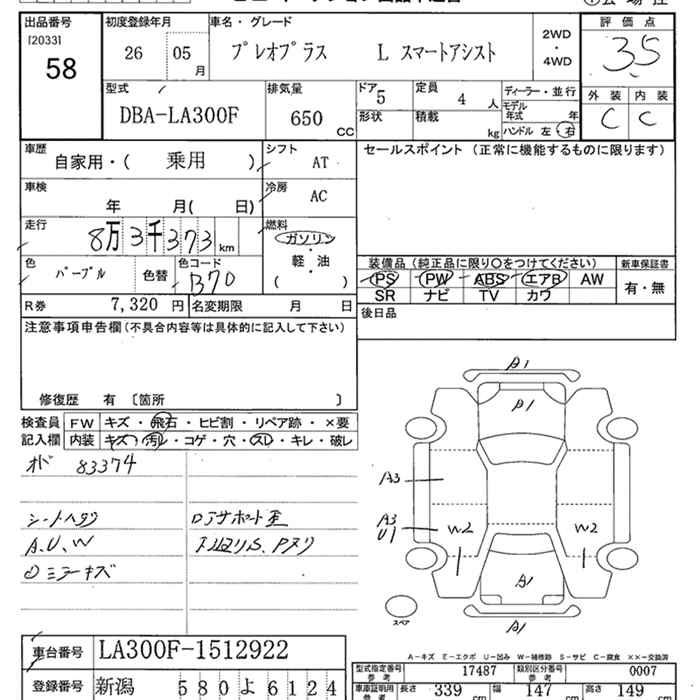 出品番号
[2033]
58
初度登録年月
26 05 月
車名・グレード
プレオプラス L スマートアシスト
2WD
・
4WD
評価点
3.5
外装 内装
C C
型式
DBA-LA300F
排気量
650 CC
ドア 5
定員 4 人
形状
積載 kg
ディーラー・並行
モデル年式 年
ハンドル 左・右
車歴
自家用・( 乗用 )
シフト AT
セールスポイント (正常に機能するものに限ります)
車検
年 月( 日)
冷房 AC
走行
8万3千373 km
燃料
ガソリン
・
軽・油
( )
色 パープル 色替
色コード B70
装備品 (純正品に限り○をつけてください)
新車保証書
PS PW ABS エアB AW
SR ナビ TV カワ
有・無
R券 7,320 円
名変期限 月 日
後日品
注意事項申告欄(不具合内容等は具体的に記入して下さい)
修復歴 有 〔箇所 〕
検査員記入欄
FW キズ・飛石・ヒビ割・リペア跡・×要
内装 キズ・汚れ・コゲ・穴・スレ・キレ・破レ
オド 83374
シートヘタリ
A.U.W
①ミラーキズ
A1
A1
A3
A3
U1
W2
W2
A1
A1
スペア
A-キズ E-エクボ U-凹み W-補修跡 S-サビ C-腐食 ××-交換済
車台番号 LA300F-1512922
登録番号 新潟 580 よ 6124
型式指定番号 参考 17487
類別区分番号 参考 0007
車庫証明用 参考 長さ 339 cm 幅 147 cm 高さ 149 cm